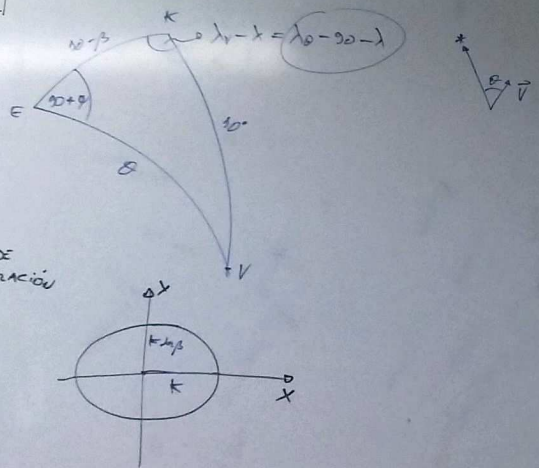 K
90-β
λv - λ = λ⊙ - 90 - λ
*
θ
v
E
90+φ
90°
θ
V
DE
RACIÓN
Y
K sin β
K
X